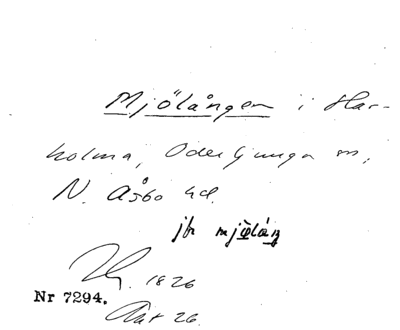 Mjölången i Har-
holma, Oderljunga sn,
N. Åsbo hd.
jfr mjölång
1826
Nr 7294.
26